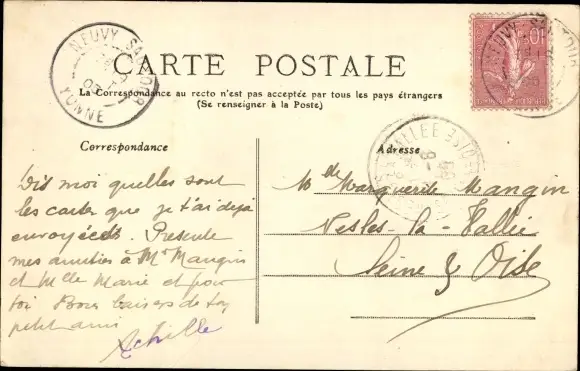 CARTE POSTALE
La Correspondance au recto n'est pas acceptée par tous les pays étrangers
(Se renseigner à la Poste)
NEUVY SAUTOUR
YONNE
NEUVY SAUTOUR
10
VALLÉE
OISE
Correspondance
Adresse
Dis moi quelles sont
les cartes que je t'ai deja
envoyées. Presente
mes amitiés à Mr Mangin
et Mlle Marie et pour
toi Bons baisers de ton
petit ami
Achille
Mlle Marguerite Mangin
Nesles-la-Vallée
Seine & Oise